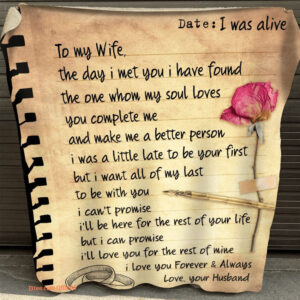 Date: I was alive
To my Wife,
the day i met you i have found
the one whom my soul loves
you complete me
and make me a better person
i was a little late to be your first
but i want all of my last
to be with you
i can't promise
i'll be here for the rest of your life
but i can promise
i'll love you for the rest of mine
i love you Forever & Always
Love, your Husband